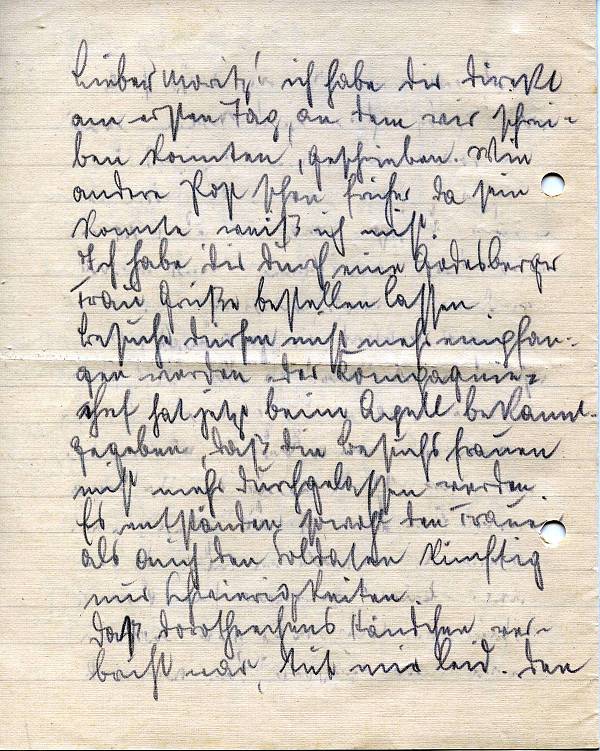 Lieber Moritz! ich habe dir direkt
am ersten Tag, an dem wir schrei-
ben konnten, geschrieben. Wie
andere Post schon früher da sein
konnte weiß ich nicht.
Ich habe dir durch eine Godesberger
Frau Grüße bestellen lassen.
Besuche dürfen nicht mehr empfan-
gen werden. der Kompagnie-
chef hat jetzt beim Apell bekannt-
gegeben, daß die Besuchsfrauen
nicht mehr durchgelassen werden.
Es entständen sowohl den Frauen
als auch den Soldaten künftig
nur Schwierigkeiten.
Daß Dorotheechens Händchen ver-
brüht war, tut mir leid. Den